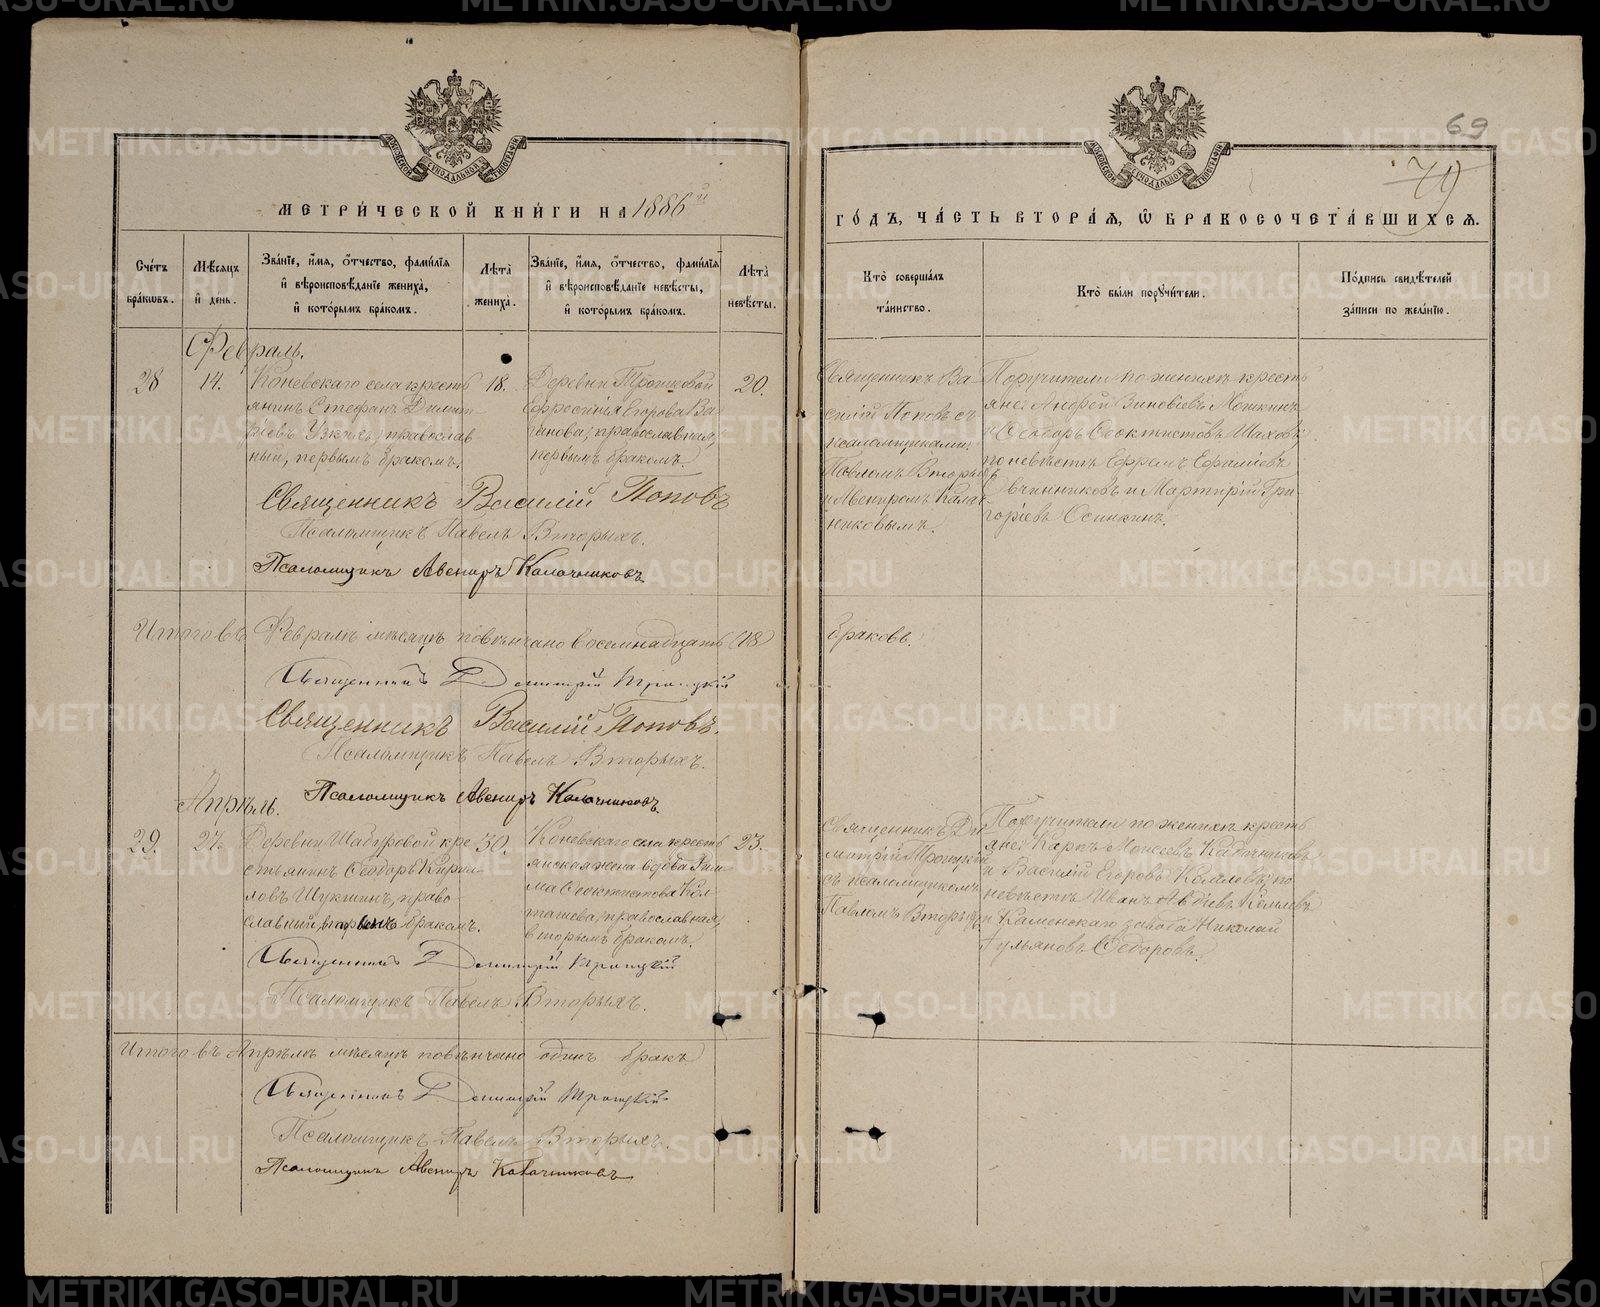 69
79
МЕТРИЧЕСКОЙ КНИГИ НА 1886й
ГОДЪ, ЧАСТЬ ВТОРАЯ, Ѡ БРАКОСОЧЕТАВШИХСЯ.
Счетъ браковъ.
Мѣсяцъ и день.
Званіе, имя, отчество, фамилія и вѣроисповѣданіе жениха, и которымъ бракомъ.
Лѣта жениха.
Званіе, имя, отчество, фамилія и вѣроисповѣданіе невѣсты, и которымъ бракомъ.
Лѣта невѣсты.
Кто совершалъ таинство.
Кто были поручители.
Подпись свидѣтелей записи по желанію.
Февраль.
28
14.
Коневскаго села кресть
янинъ Стефанъ Димит
ріевъ Узкихъ, православ
ный, первымъ бракомъ.
18.
Деревни Трошковой
Ефросинія Егорова Ва
ганова, православная,
первымъ бракомъ.
20.
Священникъ Ва
силій Поповъ съ
псаломщиками:
Павломъ Вторыхъ
и Авениромъ Калач
никовымъ.
Поручители по женихѣ кресть
яне: Андрей Зиновіевъ Мошкинъ
и Ѳеодоръ Ѳеоктистовъ Шаховъ;
по невѣстѣ Ефремъ
Овчинниковъ и Мартирій Гри
горіевъ Осинкинъ.
Священникъ Василій Поповъ
Псаломщикъ Павелъ Вторыхъ.
Псаломщикъ Авениръ Калачниковъ.
Итого въ Февралѣ мѣсяцѣ повѣнчано восемнадцать (18)
браковъ.
Священникъ Димитрій Троицкій
Священникъ Василій Поповъ.
Псаломщикъ Павелъ Вторыхъ.
Псаломщикъ Авениръ Калачниковъ.
Апрѣль.
29.
27.
Деревни Шабуровой кре
стьянинъ Ѳеодоръ Кирил
ловъ Щукинъ, право
славный, вторымъ бракомъ.
30.
Коневскаго села кресть
янская жена вдова
Ѳеоктистова Кол
ташева, православная,
вторымъ бракомъ.
23.
Священникъ Ди
митрій Троицкій
съ псаломщикомъ
Павломъ Вторыхъ
Поручители по женихѣ кресть
яне: Карпъ Моисеевъ
и Василій Егоровъ по
невѣстѣ Иванъ
и Каменскаго завода Николай
Ѳедоровъ.
Священникъ Димитрій Троицкій
Псаломщикъ Павелъ Вторыхъ.
Итого въ Апрѣлѣ мѣсяцѣ повѣнчано одинъ бракъ
Священникъ Димитрій Троицкій
Псаломщикъ Павелъ Вторыхъ.
Псаломщикъ Авениръ Калачниковъ
METRIKI.GASO-URAL.RU